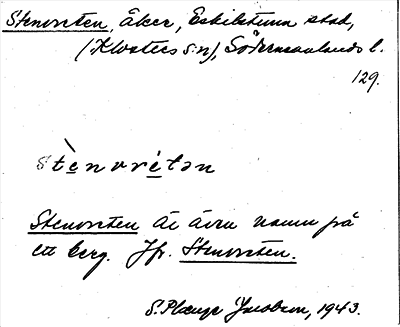 Stenvreten, åker, Eskilstuna stad,
(Klosters sn), Södermanlands l.
129.
stènvrétən
Stenvreten är även namn på
ett berg. Jfr. Stenvreten.
S. Plænge Jacobson, 1943.